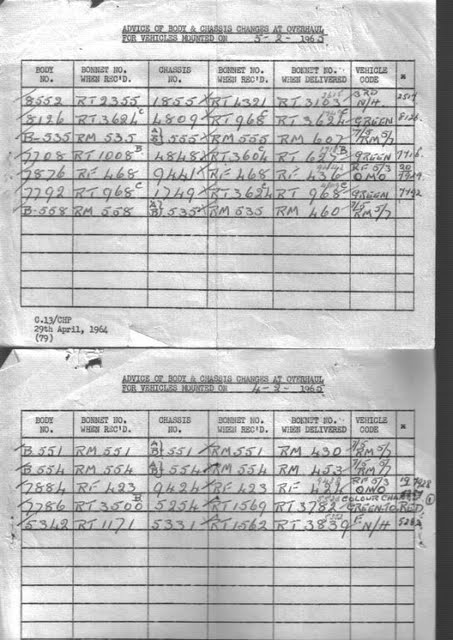 ADVICE OF BODY & CHASSIS CHANGES AT OVERHAUL
FOR VEHICLES MOUNTED ON 5-2-1965
BODY NO. BONNET NO. WHEN REC'D. CHASSIS NO. BONNET NO. BONNET NO. WHEN DELIVERED VEHICLE CODE *
8552 RT 2355 1855 RT 4321 RT 3103 3RD N/H.
8126 RT 3624 C 4809 RT 968 C RT 3624 GREEN 8126
B-535 RM 535 555 RM 555 RM 607 7/5 RM 5/7
7708 RT 1008 B 4848 RT 3604 C RT 627 GREEN
7876 RF 468 9441 RF 468 RF 436 RF 5/3 OMO
7792 RT 968 C 1749 RT 3624 C RT 968 GREEN 7792
B-558 RM 558 535 RM 535 RM 460 7/5 RM 5/7
C.13/CHP
29th April, 1964
(79)
ADVICE OF BODY & CHASSIS CHANGES AT OVERHAUL
FOR VEHICLES MOUNTED ON
BODY NO. BONNET NO. WHEN REC'D. CHASSIS NO. BONNET NO. WHEN REC'D. BONNET NO. WHEN DELIVERED VEHICLE CODE *
B.551 RM 551 551 RM.551 RM 430 7/5 RM 5/7
B.554 RM 554 554 RM 554 RM 453 7/5 RM 5/7
7884 RF 423 9424 RF 423 RF 429 RF 5/3 OMO
7786 RT 3500 B 5254 RT 1569 RT 3782 COLOUR GREEN TO RED
5342 RT 1171 5331 RT 1562 RT 3839 N/H